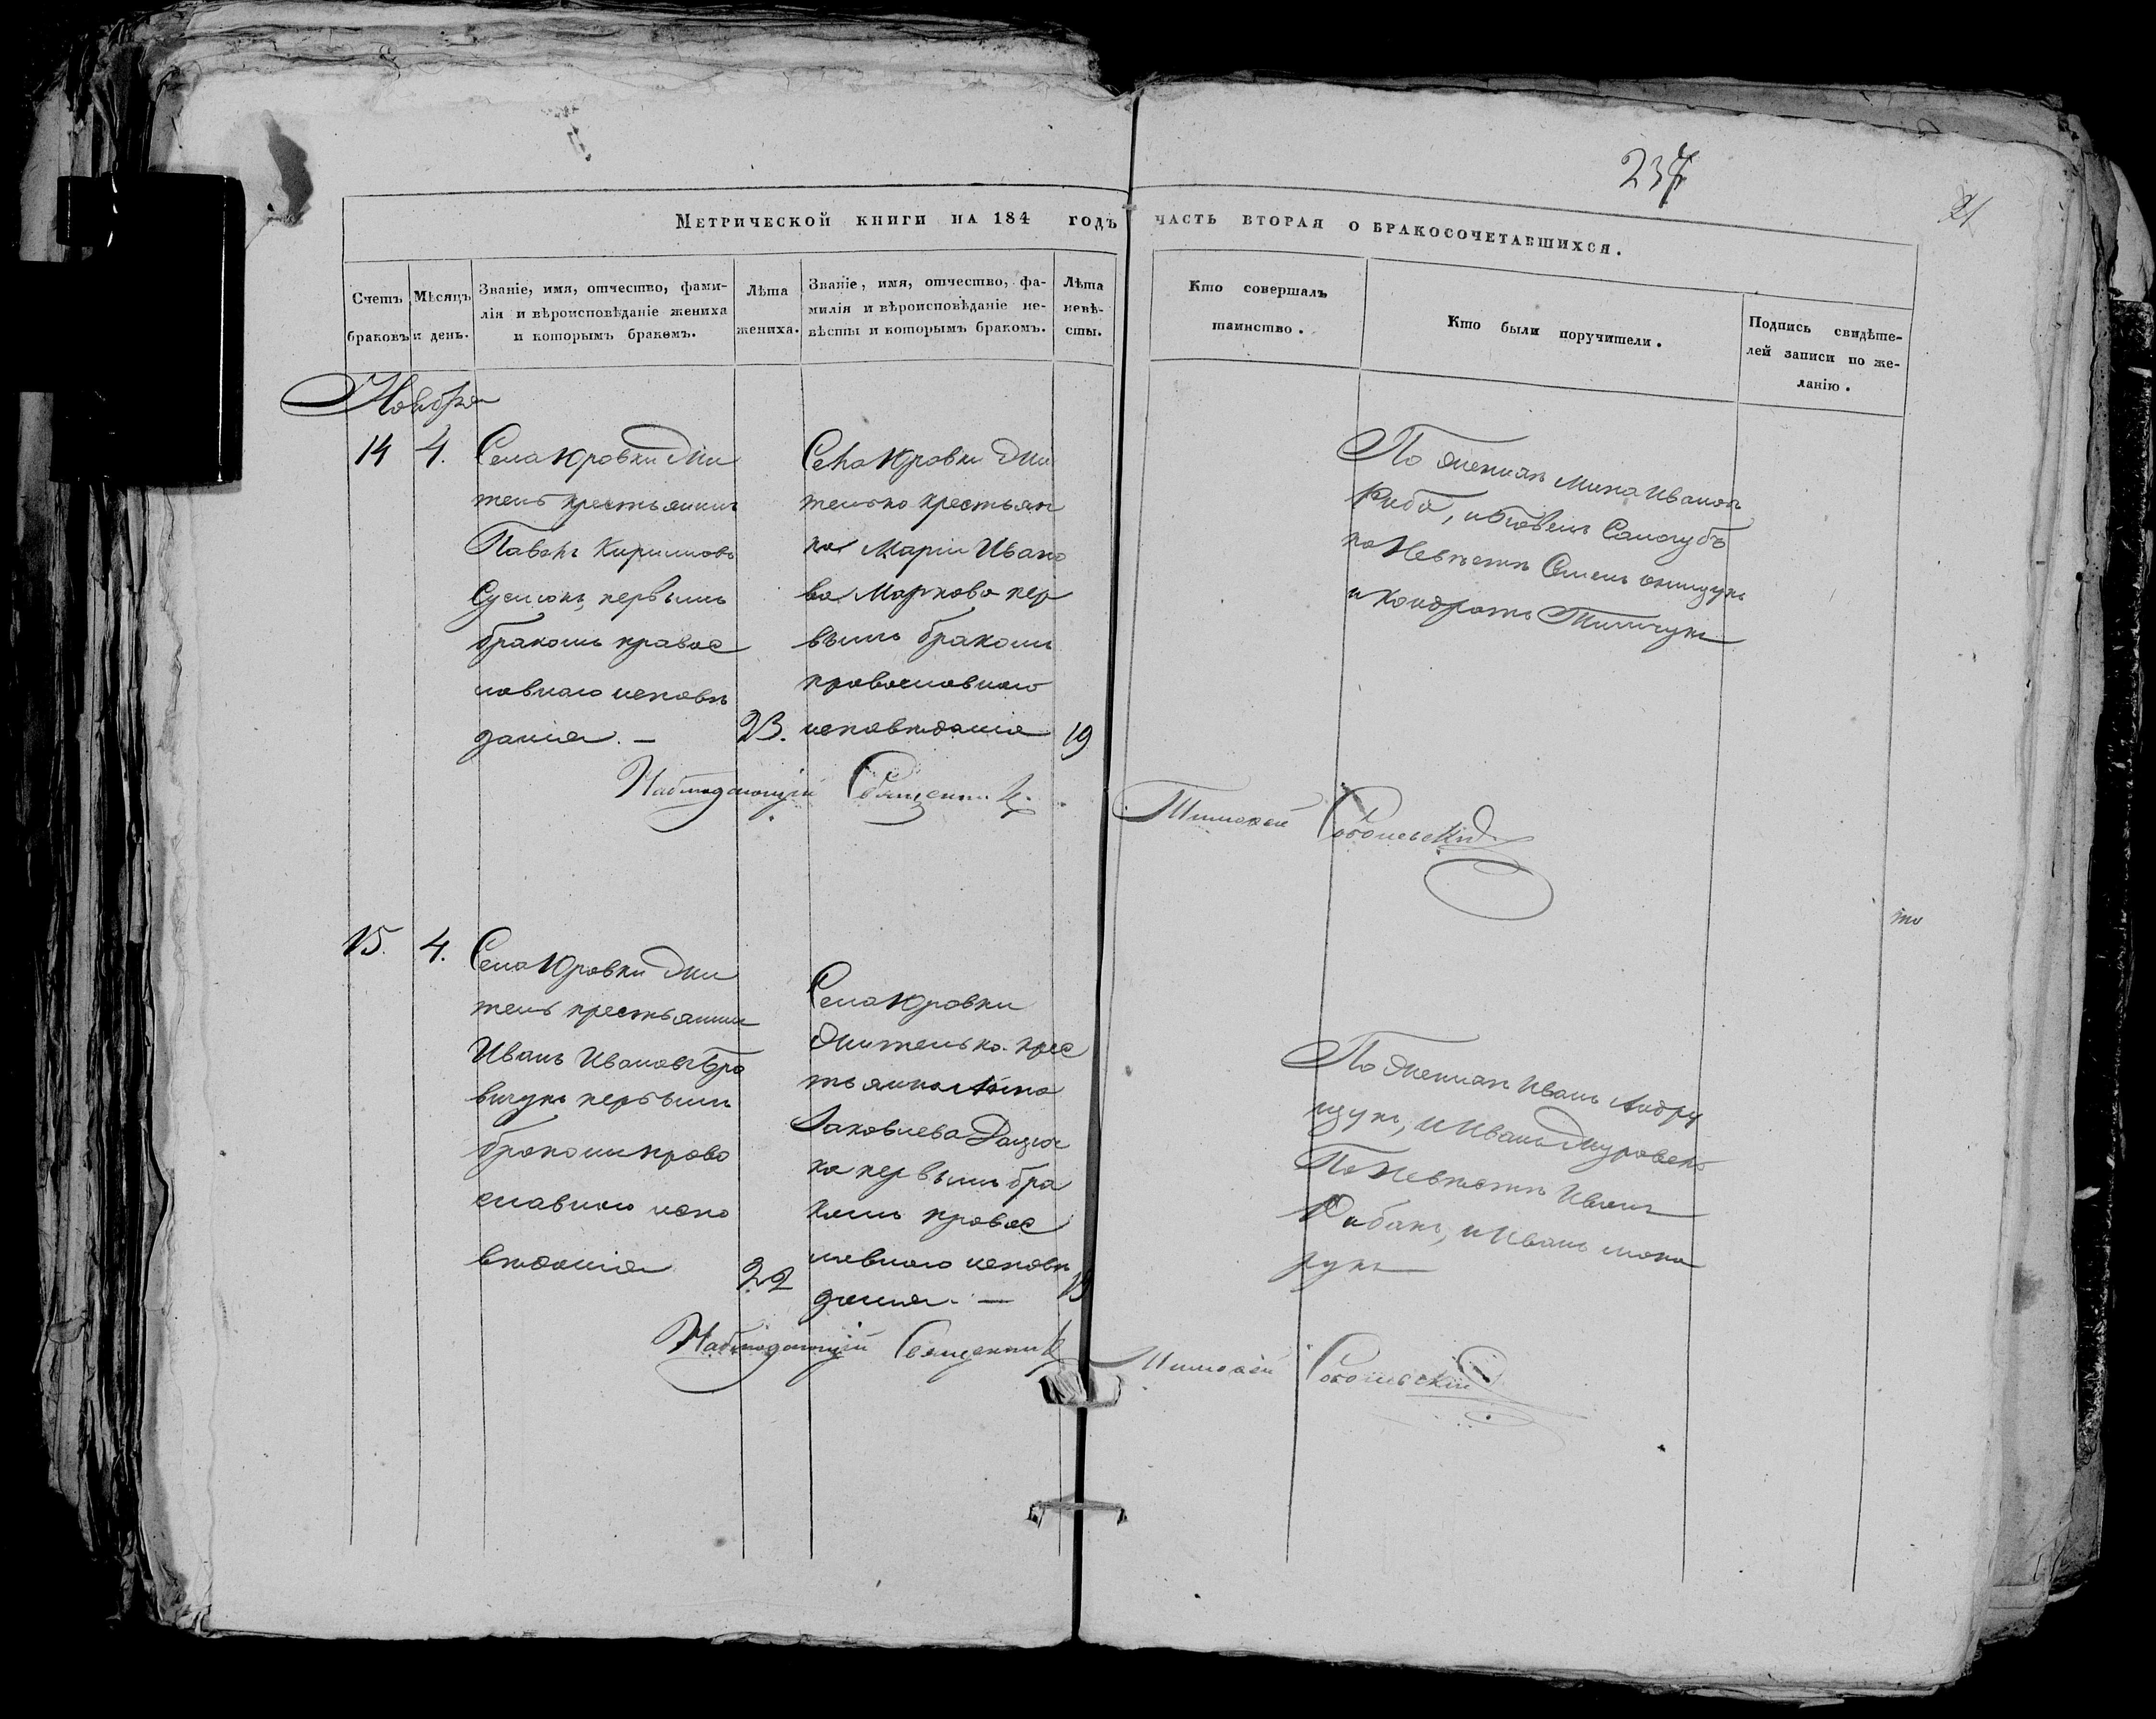 237
21
Метрической книги на 184 годъ часть вторая о бракосочетавшихся.
Счетъ браковъ
Мѣсяцъ и день.
Званіе, имя, отчество, фами-
лія и вѣроисповѣданіе жениха
и которымъ бракомъ.
Лѣта
жениха.
Званіе, имя, отчество, фа-
милія и вѣроисповѣданіе не-
вѣсты и которымъ бракомъ.
Лѣта
невѣ-
сты.
Кто совершалъ
таинство.
Кто были поручители.
Подпись свидѣте-
лей записи по же-
ланію.
Ноября
14 4.
Села Юровки жи
тель крестьянинъ
Павелъ Кириловъ
первымъ
бракомъ правос
лавнаго исповѣ
данія. —
23.
Села Юровки жи
телька крестьян
ка Марія Ивано
ва Маркова пер
вымъ бракомъ
православнаго
исповѣданія
19
По женихѣ Мина Ивановъ
Риба, и
по Невѣстѣ Семенъ
и Кондратъ
Наблюдающій Священникъ Тимофей
15. 4.
Села Юровки жи
тель крестьянинъ
Иванъ Ивановъ
первымъ
бракомъ право
славнаго испо
вѣданія
22
Села Юровки
жителька крес
тьянка Анна
Яковлева
ка первымъ бра
комъ правос
лавнаго исповѣ
данія. —
По женихѣ Иванъ Андру
щукъ, и Иванъ
По Невѣстѣ Иванъ
Рибакъ, и Иванъ
рукъ
Наблюдающій Священникъ Тимофей